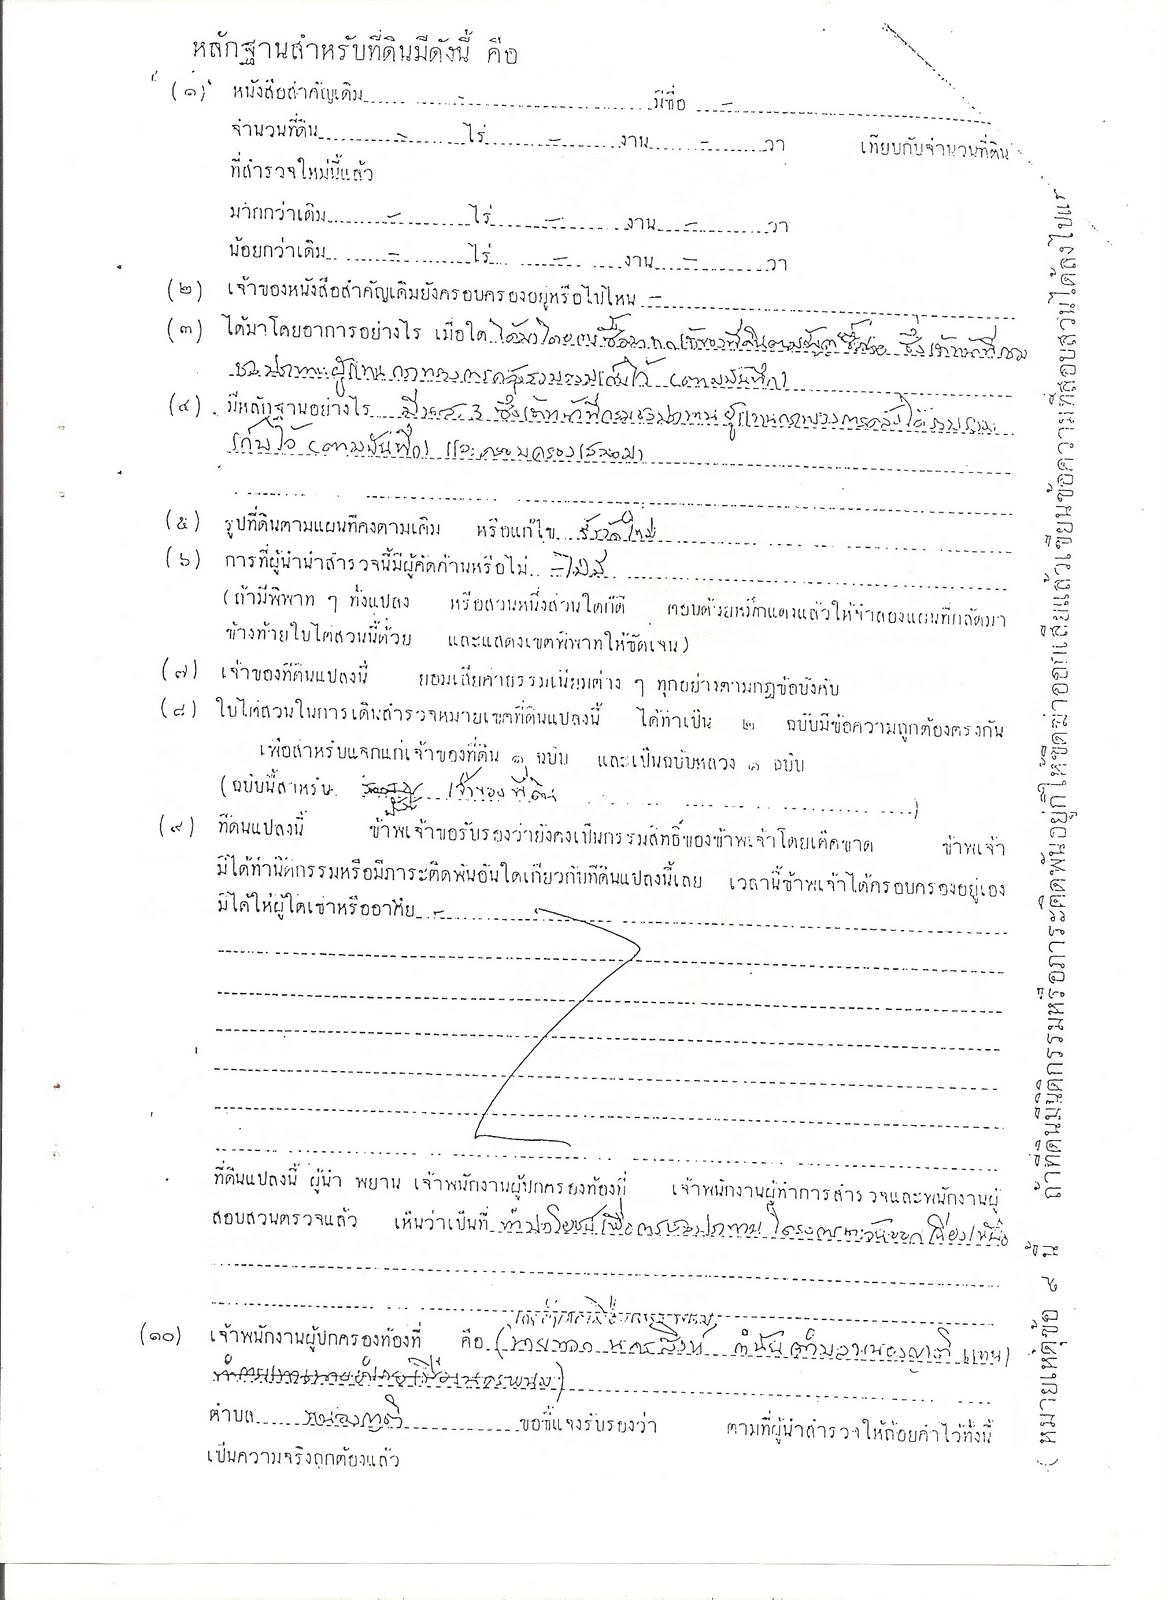 หลักฐานสำหรับที่ดินมีดังนี้ คือ
(๑) หนังสือสำคัญเดิม - มีชื่อ -
จำนวนที่ดิน - ไร่ - งาน - วา เทียบกับจำนวนที่ดิน
ที่สำรวจใหม่นี้แล้ว
มากกว่าเดิม - ไร่ - งาน - วา
น้อยกว่าเดิม - ไร่ - งาน - วา
(๒) เจ้าของหนังสือสำคัญเดิมยังครอบครองอยู่หรือไปไหน -
(๓) ได้มาโดยอาการอย่างไร เมื่อใด ได้มาโดย ซื้อ ซึ่งเจ้าหน้าที่กรม
ชลประทานผู้แทนกระทรวงการคลังรวบรวมเก็บไว้ (ตามบันทึก)
(๔) มีหลักฐานอย่างไร มี น.ส. 3 ซึ่งเจ้าหน้าที่กรมชลประทานผู้แทนกระทรวงการคลังได้รวบรวม
เก็บไว้ (ตามบันทึก) และครอบครองเสมอมา
(๕) รูปที่ดินตามแผนที่คงตามเดิม หรือแก้ไข รังวัดใหม่
(๖) การที่ผู้นำนำสำรวจนี้มีผู้คัดค้านหรือไม่ - ไม่มี
(ถ้ามีพิพาท ๆ ทั้งแปลง หรือส่วนหนึ่งส่วนใดก็ดี ตอบด้วยหมึกแดงแล้วให้จำลองแผนที่กลัดมา
ข้างท้ายใบไต่สวนนี้ด้วย และแสดงเขตพิพาทให้ชัดเจน)
(๗) เจ้าของที่ดินแปลงนี้ ยอมเสียค่าธรรมเนียมต่าง ๆ ทุกอย่างตามกฎข้อบังคับ
(๘) ใบไต่สวนในการเดินสำรวจหมายเขตที่ดินแปลงนี้ ได้ทำเป็น ๒ ฉบับมีข้อความถูกต้องตรงกัน
เพื่อสำหรับแจกแก่เจ้าของที่ดิน ๑ ฉบับ และเป็นฉบับหลวง ๑ ฉบับ
(ฉบับนี้สำหรับ เจ้าของที่ดิน )
(๙) ที่ดินแปลงนี้ ข้าพเจ้าขอรับรองว่ายังคงเป็นกรรมสิทธิ์ของข้าพเจ้าโดยเด็ดขาด ข้าพเจ้า
มิได้ทำนิติกรรมหรือมีภาระติดพันอันใดเกี่ยวกับที่ดินแปลงนี้เลย เวลานี้ข้าพเจ้าได้ครอบครองอยู่เอง
มิได้ให้ผู้ใดเช่าหรืออาศัย -
ที่ดินแปลงนี้ ผู้นำ พยาน เจ้าพนักงานผู้ปกครองท้องที่ เจ้าพนักงานผู้ทำการสำรวจและพนักงานผู้
สอบสวนตรวจแล้ว เห็นว่าเป็นที่ ทำประโยชน์เพื่อการชลประทาน โครงการตะวันออกเฉียงเหนือ
(๑๐) เจ้าพนักงานผู้ปกครองท้องที่ คือ กำนันตำบลหนองญาติ แทน)
ตำบล หนองญาติ ขอชี้แจงรับรองว่า ตามที่ผู้นำสำรวจให้ถ้อยคำไว้ทั้งนี้
เป็นความจริงถูกต้องแล้ว
(หมายเหตุข้อ ๙ นี้ ถ้าที่ดินมีนิติกรรมหรือภาระติดพันอยู่ก็ให้ขีดฆ่าออกเสียแล้วเขียนข้อความที่สอบสวนได้ลงไปแทน